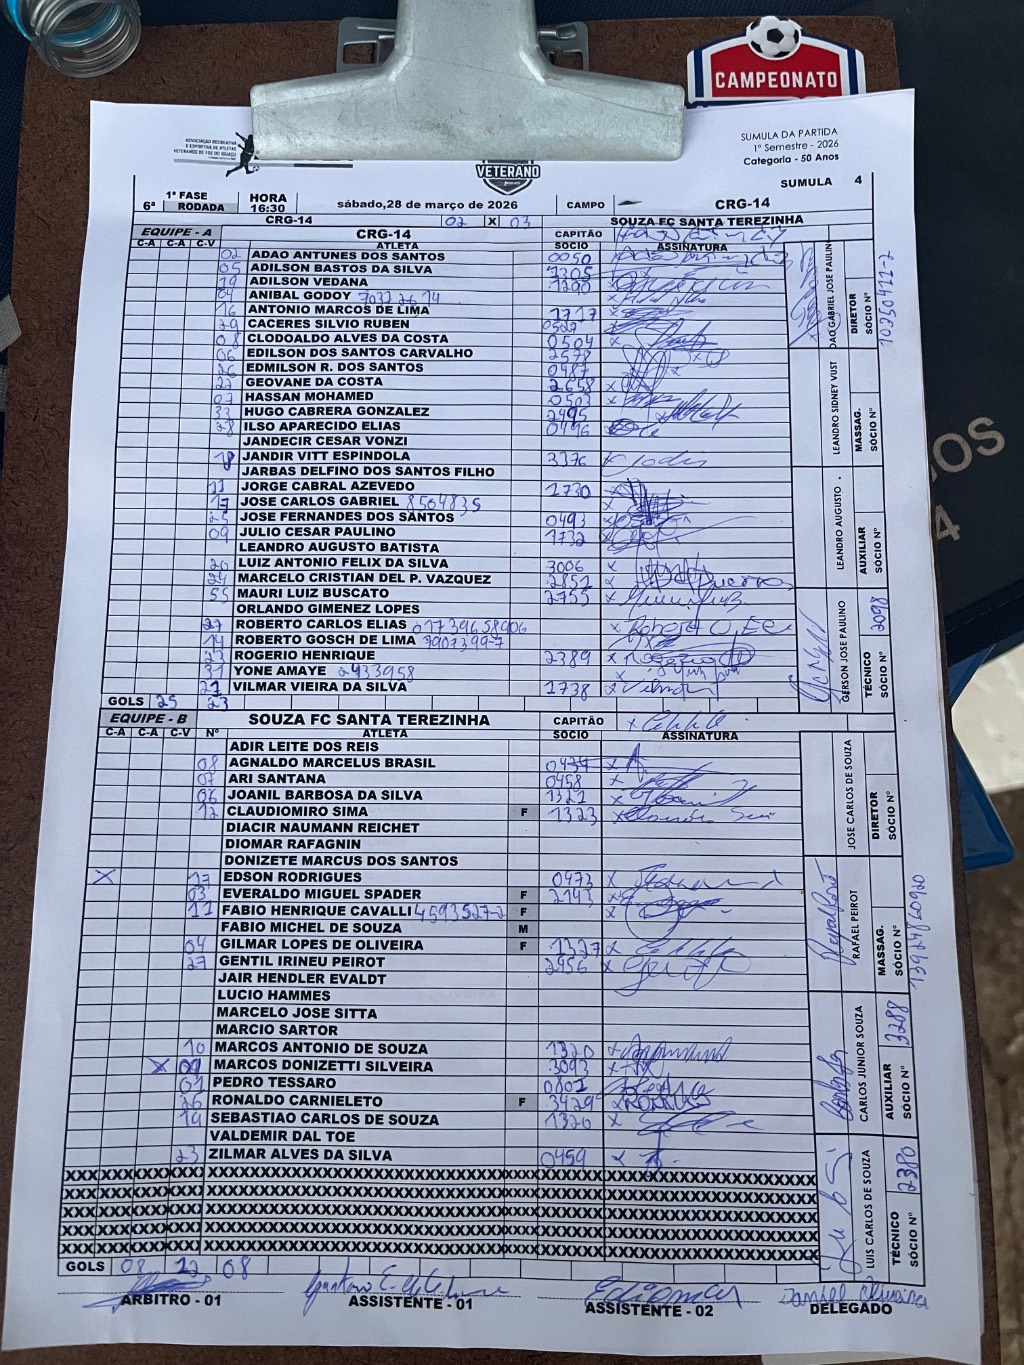 CAMPEONATO
ASSOCIAÇÃO RECREATIVA
E ESPORTIVA DE ATLETAS
VETERANOS DE FOZ DO IGUAÇU
VETERANO
SUMULA DA PARTIDA
1º Semestre - 2026
Categoria - 50 Anos
SUMULA 4
6ª 1ª FASE RODADA HORA 16:30 sábado,28 de março de 2026 CAMPO CRG-14
CRG-14 02 X 03 SOUZA FC SANTA TEREZINHA
EQUIPE - A CRG-14 CAPITÃO
C-A C-A C-V ATLETA SOCIO ASSINATURA
02 ADAO ANTUNES DOS SANTOS 0050
05 ADILSON BASTOS DA SILVA 1205
19 ADILSON VEDANA 1290
04 ANIBAL GODOY
16 ANTONIO MARCOS DE LIMA 1717
29 CACERES SILVIO RUBEN 0527
08 CLODOALDO ALVES DA COSTA 0504
06 EDILSON DOS SANTOS CARVALHO 2578
26 EDMILSON R. DOS SANTOS 0487
22 GEOVANE DA COSTA 2658
07 HASSAN MOHAMED 0503
33 HUGO CABRERA GONZALEZ 2495
28 ILSO APARECIDO ELIAS 0496
JANDECIR CESAR VONZI
18 JANDIR VITT ESPINDOLA 3376
JARBAS DELFINO DOS SANTOS FILHO
11 JORGE CABRAL AZEVEDO 1730
17 JOSE CARLOS GABRIEL 8504835
25 JOSE FERNANDES DOS SANTOS 0493
09 JULIO CESAR PAULINO 1732
LEANDRO AUGUSTO BATISTA
20 LUIZ ANTONIO FELIX DA SILVA 3006
24 MARCELO CRISTIAN DEL P. VAZQUEZ 2852
55 MAURI LUIZ BUSCATO 2755
ORLANDO GIMENEZ LOPES
27 ROBERTO CARLOS ELIAS 01739658906
14 ROBERTO GOSCH DE LIMA 3907399-7
23 ROGERIO HENRIQUE 2389
31 YONE AMAYE 2433958
21 VILMAR VIEIRA DA SILVA 1738
GOLS 25 23
DIRETOR
SÓCIO Nº 10350411-2
LEANDRO SIDNEY VUST
MASSAG.
SÓCIO Nº
LEANDRO AUGUSTO
AUXILIAR
SÓCIO Nº
GERSON JOSE PAULINO
TÉCNICO
SÓCIO Nº 2098
EQUIPE - B SOUZA FC SANTA TEREZINHA CAPITÃO
C-A C-A C-V Nº ATLETA SOCIO ASSINATURA
ADIR LEITE DOS REIS
08 AGNALDO MARCELUS BRASIL 0434
07 ARI SANTANA 0458
06 JOANIL BARBOSA DA SILVA 1322
12 CLAUDIOMIRO SIMA F 1323
DIACIR NAUMANN REICHET
DIOMAR RAFAGNIN
DONIZETE MARCUS DOS SANTOS
X 17 EDSON RODRIGUES 0473
03 EVERALDO MIGUEL SPADER F 2143
11 FABIO HENRIQUE CAVALLI 4593527-2 F
FABIO MICHEL DE SOUZA M
04 GILMAR LOPES DE OLIVEIRA F 1327
27 GENTIL IRINEU PEIROT 2956
JAIR HENDLER EVALDT
LUCIO HAMMES
MARCELO JOSE SITTA
MARCIO SARTOR
10 MARCOS ANTONIO DE SOUZA 1320
X 09 MARCOS DONIZETTI SILVEIRA 3093
01 PEDRO TESSARO 0801
26 RONALDO CARNIELETO F 3429
19 SEBASTIAO CARLOS DE SOUZA 1326
VALDEMIR DAL TOE
23 ZILMAR ALVES DA SILVA 0459
GOLS 08 12 08
JOSE CARLOS DE SOUZA
DIRETOR
SÓCIO Nº
RAFAEL PEIROT
MASSAG.
SÓCIO Nº 13924860920
CARLOS JUNIOR SOUZA
AUXILIAR
SÓCIO Nº 3288
LUIS CARLOS DE SOUZA
TÉCNICO
SÓCIO Nº 2380
ARBITRO - 01 ASSISTENTE - 01 ASSISTENTE - 02 DELEGADO